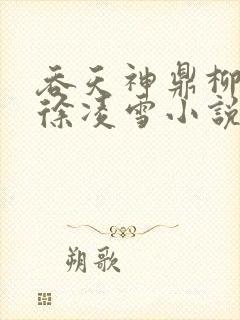 吞天神鼎柳
徐凌雪小說
朔歌